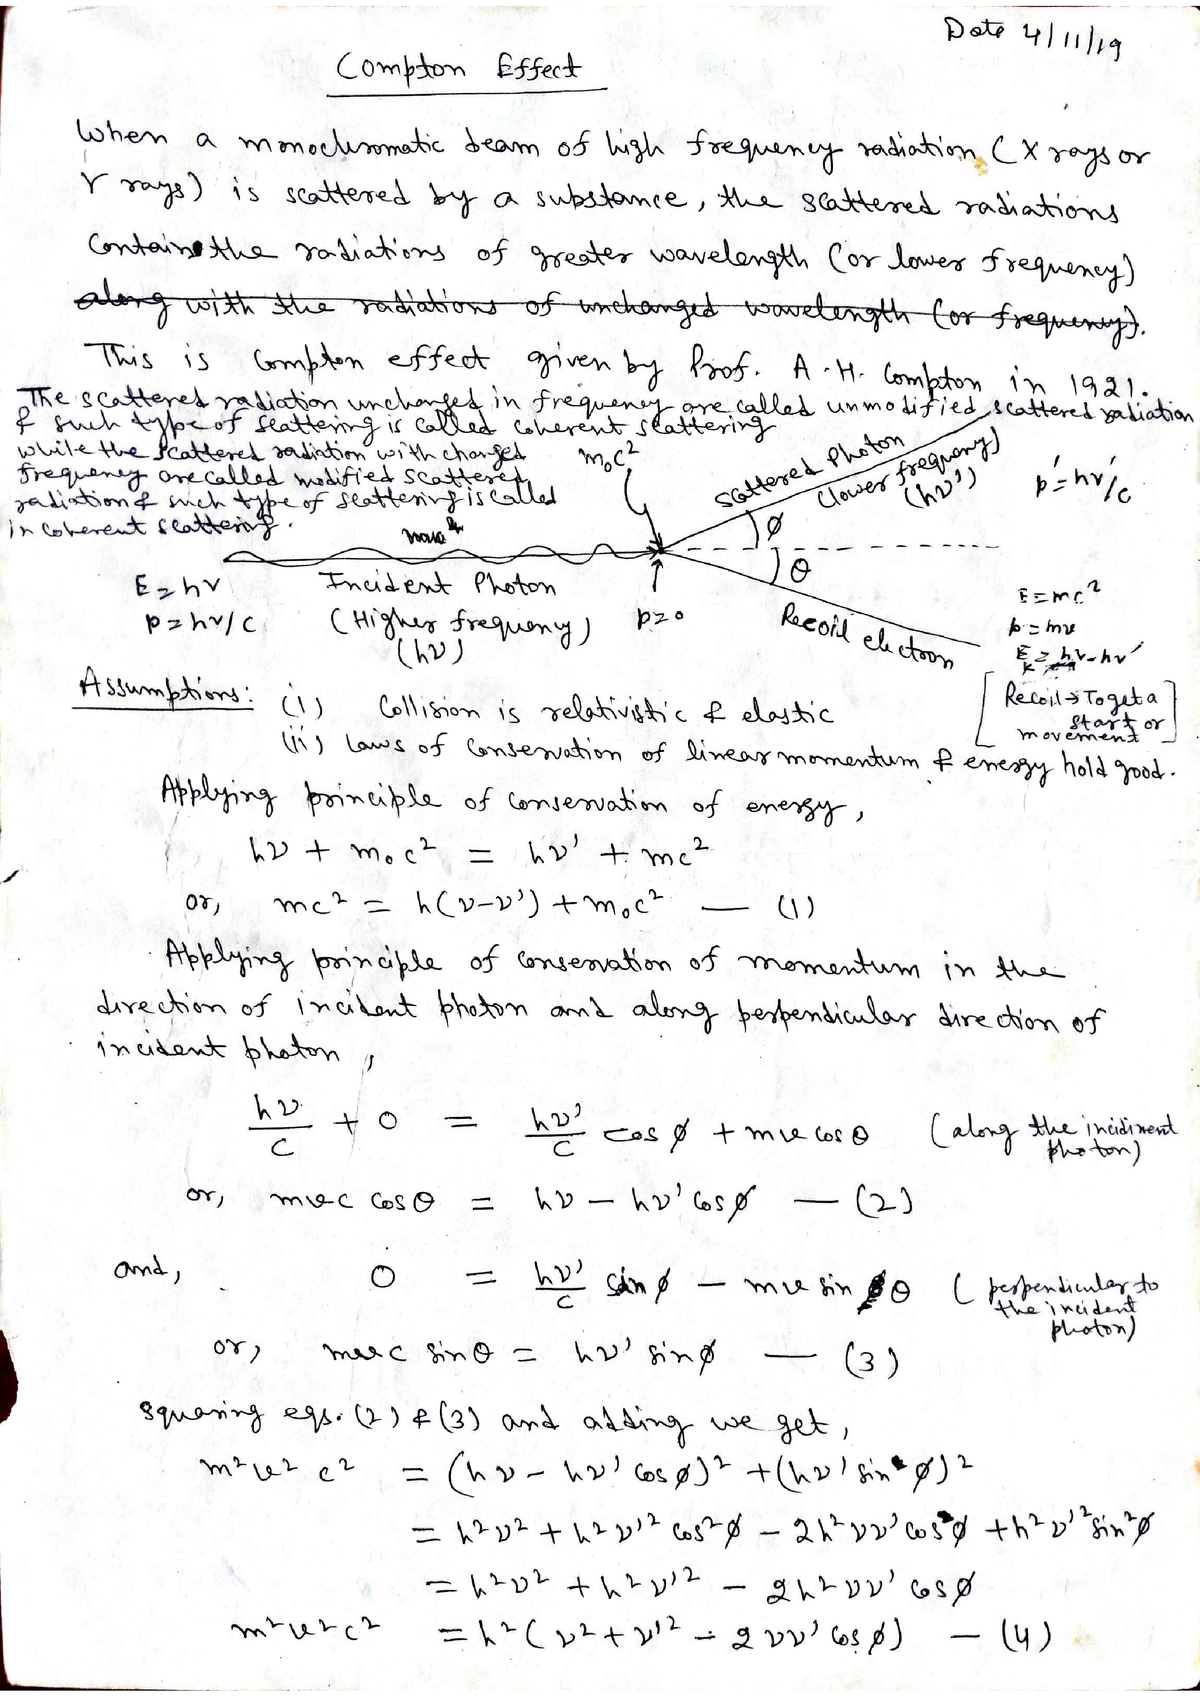 Date 4/11/19
Compton Effect
When a monochromatic beam of high frequency radiation (X rays or
γ rays) is scattered by a substance, the scattered radiations
Contains the radiations of greater wavelength (or lower frequency)
along with the radiations of unchanged wavelength (or frequency).
This is Compton effect given by Prof. A.H. Compton in 1921.
The scattered radiation unchanged in frequency are called unmodified scattered radiation
& such type of scattering is called coherent scattering
while the scattered radiation with changed
frequency are called modified scattered
radiation & such type of scattering is called
in coherent scattering.
m₀c²
scattered Photon
(lower frequency)
(hν')
p' = hν'/c
ϕ
θ
E = hν
p = hν/c
Incident Photon
(Higher frequency)
(hν)
p=0
Recoil electron
E = mc²
p = mv
E = hν - hν'
[Recoil → To get a
start or
movement]
Assumptions: (i) Collision is relativistic & elastic
(ii) Laws of conservation of linear momentum & energy hold good.
Applying principle of conservation of energy,
hν + m₀c² = hν' + mc²
or, mc² = h(ν-ν') + m₀c² — (1)
Applying principle of conservation of momentum in the
direction of incident photon and along perpendicular direction of
incident photon,
hν/c + 0 = hν'/c cos ϕ + mv cos θ (along the incidinent
photon)
or, mvc cos θ = hν - hν' cos ϕ — (2)
and, 0 = hν'/c sin ϕ - mv sin θ (perpendicular to
the incident
photon)
or, mvc sin θ = hν' sin ϕ — (3)
squaring eqs. (2) & (3) and adding we get,
m²v²c² = (hν - hν' cos ϕ)² + (hν' sin ϕ)²
= h²ν² + h²ν'² cos²ϕ - 2h²νν' cos ϕ + h²ν'² sin²ϕ
= h²ν² + h²ν'² - 2h²νν' cos ϕ
m²v²c² = h²(ν² + ν'² - 2νν' cos ϕ) — (4)